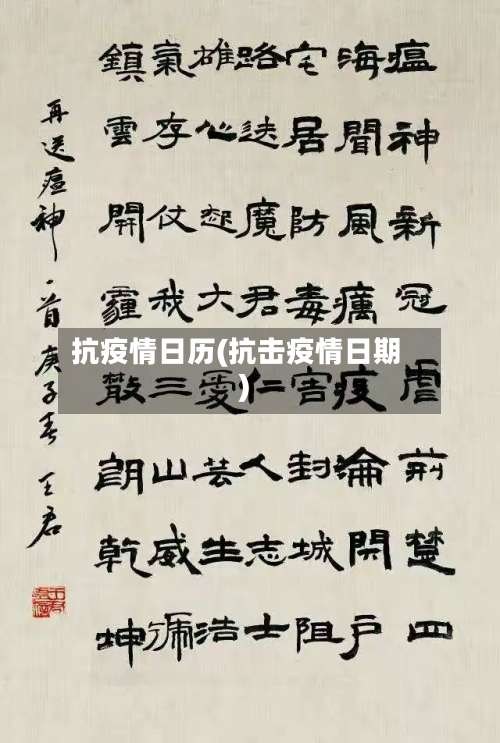 抗疫情日历(抗击疫情日期
)
瘟神新冠虐荊楚四
海聞風癘疫淪閉户
宅居防毒害封城阻
路送魔君仁人志士
雄心起大愛芸生浩
氣存仗我三山威
鎮雲開霾散朗乾坤
再送瘟神一首庚子春 王君